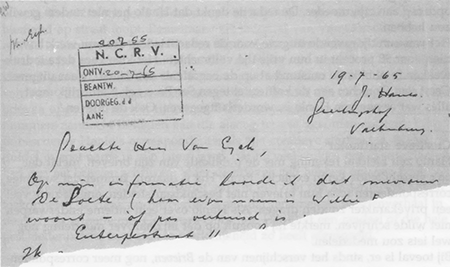 20255
N.C.R.V.
ONTV. 20-7-65
BEANTW.
DOORGEG. d.d
AAN:
19-7-65
J.
Valkenburg
Geachte Heer Van Eyck,
Op mijn informatie hoorde ik dat mevrouw
De Soete (haar eigen naam is Willie
woont - of pas verhuisd is
Euterpestraat 11
Ik